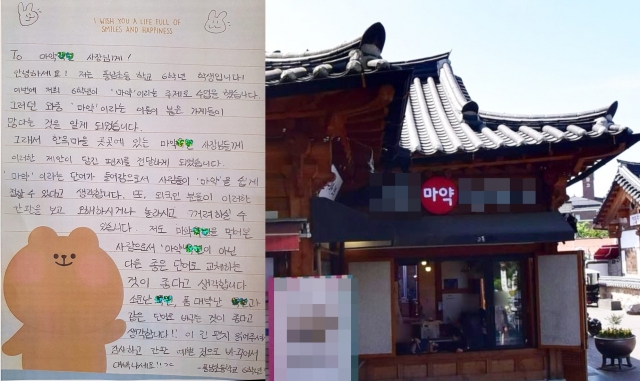 I WISH YOU A LIFE FULL OF
SMILES AND HAPPINESS
To 마약 사장님께!
안녕하세요! 저는 풍남초등학교 6학년 학생입니다!
이번에 저희 6학년이 '마약'이라는 주제로 수업을 했습니다.
그러던 와중 '마약'이라는 이름이 붙은 가게들이
많다는 것을 알게 되었습니다.
그래서 한옥마을 곳곳에 있는 마약 사장님들께
이러한 제안이 담긴 편지를 전달하게 되었습니다.
'마약'이라는 단어가 들어감으로서 사람들이 '마약'을 쉽게
접할 수 있다고 생각합니다. 또, 외국인 분들이 이러한
간판을 보고 오해하시거나 놀라시고 꺼려하실 수
있습니다. 저도 마약 를 먹어본
사람으로서 '마약 이 아닌
다른 좋은 단어로 교체하는
것이 좋다고 생각합니다
소문난 , 폼 대박난 과
같은 단어로 바꾸는 것이 좋다고
생각합니다!! 이 긴 편지 읽어주셔서
감사하고 간판 예쁜 것으로 바꾸어서
대박나세요!
-풍남초등학교 6학년
마약